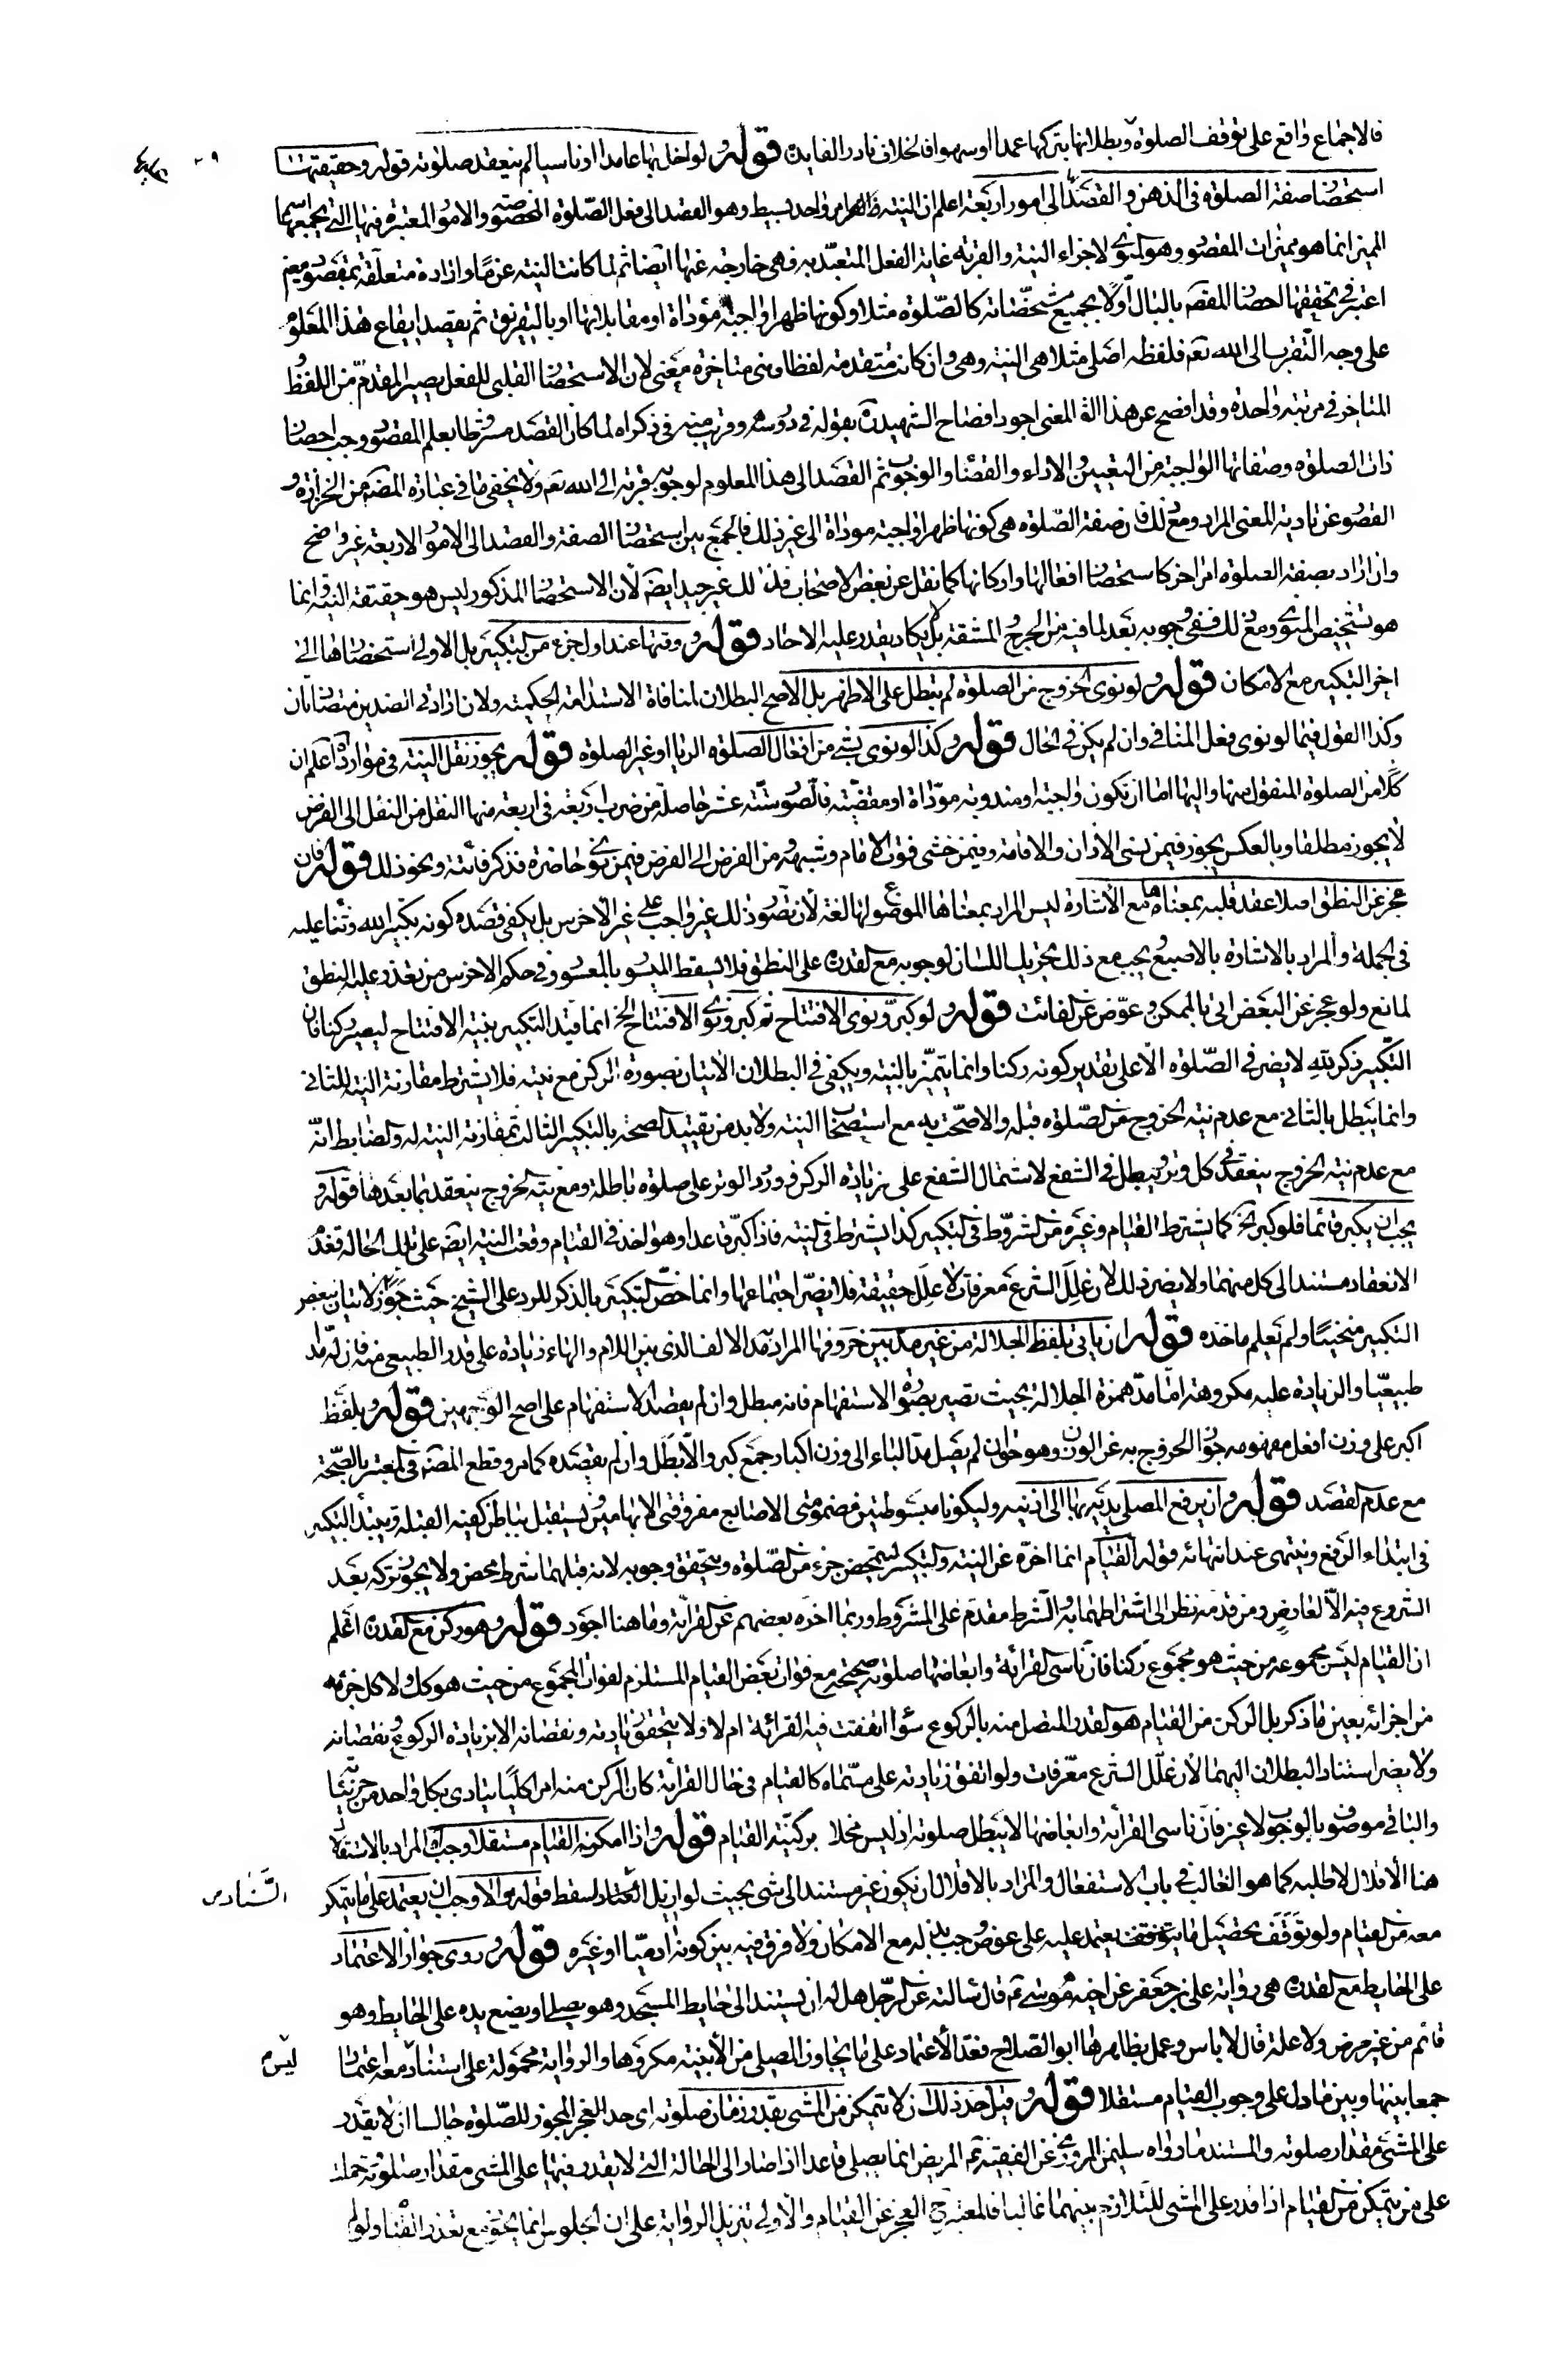 فالاجماع واقع على توقف الصلوة وبطلانها بتركها عمدا او سهوا فالخلاف نادر الفايدة قوله ولو اخل بها عامدا او ناسيا لم ينعقد صلوته قوله وحقيقتها
استحضار صفة الصلوة فى الذهن والقصد بها الى امور اربعة اعلم ان النية امر واحد بسيط وهو القصد الى فعل الصلوة المخصوصة والامور المعتبرة فيها التى يجمعها اسم
المميز انما هو مميزات المقصود وهو المنوى لا جزاء النية والقربة غاية الفعل المتعبد به فهى خارجة عنها ايضا ثم لما كانت النية عزما وارادة متعلقة بمقصود معين
اعتبر فى تحققها احضار المقصود بالبال اولا بجميع مشخصاته كالصلوة مثلا وكونها ظهرا واجبة مؤداة او مقابلاتها او بالتفريق ثم يقصد ايقاع هذا المعلوم
على وجه التقرب الى الله تعم فلفظة اصلى مثلا هى النية وهى وان كانت متقدمة لفظا وهى متاخرة معنى لان الاستحضار القلبى للفعل يصير المقدم من اللفظ
المتاخر فى مرتبة واحدة وقد افصح عن هذا المعنى اجود افصاح الشهيد ره بقوله فى دروسه وقريب منه فى ذكراه لما كان القصد مشروطا بعلم المقصود وجب احضار
ذات الصلوة وصفاتها الواجبة من التعيين والاداء والقضاء والوجوب ثم القصد الى هذا المعلوم لوجوبه قربة الى الله تعم ولا يخفى ما فى عبارة المصنف من الحزازة و
القصور عن تادية المعنى المراد ومع ذلك فان صفة الصلوة هى كونها ظهرا واجبة موداة الى غير ذلك فالجمع بين استحضار الصفة والقصد الى الامور الاربعة غير واضح
وان اراد بصفة الصلوة امرا اخر كاستحضار افعالها واركانها كما نقل عن بعض الاصحاب فذلك غير جيد ايضا لان الاستحضار المذكور ليس هو حقيقة النية وانما
هو تشخيص المنوى ومع ذلك ففى وجوبه بعد لما فيه من الحرج والمشقة بل لا يكاد يقدر عليه الاحاد قوله ووقتها عند اول جزء من التكبير بل الاولى استحضارها الى
اخر التكبير مع الامكان قوله ولو نوى الخروج من الصلوة لم يبطل على الاظهر بل الاصح البطلان لمنافاة الاستدامة الحكمية ولان ارادتى الضدين متضادتان
وكذا القول فيما لو نوى فعل المنافى وان لم يكن فى الحال قوله وكذا لو نوى بشىء من افعال الصلوة الريا او غير الصلوة قوله يجوز نقل النية فى موارد اعلم ان
كلا من الصلوة المنقول منها واليها اما ان تكون واجبة او مندوبة موداة او مقضية فالصور ستة عشر حاصلة من ضرب اربعة فى اربعة منها النقل من النفل الى الفرض
لا يجوز مطلقا وبالعكس يجوز فيمن نسى الاذان والاقامة وفيمن خشى فوت الامام وشبهه ومن الفرض الى الفرض فيمن نوى حاضرة فذكر فائتة ونحو ذلك قوله فان
عجز عن النطق اصلا عقد قلبه بمعناها مع الاشارة ليس المراد بمعناها الموضوع لها لغة لان تصور ذلك غير واجب على غير الاخرس بل يكفى قصده كونه تكبيرا لله وثناء عليه
فى الجملة والمراد بالاشارة بالاصبع ويجب مع ذلك تحريك اللسان لوجوبه مع القدرة على النطق فلا يسقط الميسور بالمعسور وفى حكم الاخرس من تعذر عليه النطق
لمانع ولو عجز عن البعض اتى بالممكن وعوض عن الفائت قوله ولو كبر ونوى الافتتاح ثم كبر ونوى الافتتاح الخ انما قيد التكبير بنية الافتتاح ليصير ركنا فان
التكبير ذكر لله لا يضر فى الصلوة الا على تقدير كونه ركنا وانما يتميز بالنية ويكفى فى البطلان الاتيان بصورة الركن مع نيته فلا يشترط مقارنة النية للثانى
وانما يبطل بالثانى مع عدم نية الخروج من الصلوة قبله والا صحت به مع استصحاب النية ولا بد من تقييد الصحة بالتكبير الثالث بمقارنة النية له والضابط انه
مع عدم نية الخروج ينعقد فى كل وتر ويبطل فى الشفع لاشتمال الشفع على زيادة الركن وورود الوتر على صلوة باطلة ومع نية الخروج ينعقد بما بعدها قوله و
يجب ان يكبر قائما فلو كبر الخ كما يشترط القيام وغيره من الشروط فى التكبير كذا يشترط فى النية فاذا كبر قاعدا وهو اخذ فى القيام وقعت النية ايضا على تلك الحالة فعدم
الانعقاد مستند الى كل منهما ولا يضر ذلك لان علل الشرع معرفات لا علل حقيقة فلا يضر اجتماعها وانما خص التكبير بالذكر للرد على الشيخ حيث جوز الاتيان ببعض
التكبير منحنيا ولم نعلم ماخذه قوله ان ياتى بلفظ الجلالة من غير مد بين حروفها المراد مد الالف الذى بين اللام والهاء زيادة على قدر الطبيعى منه فان له مدا
طبيعيا والزيادة عليه مكروهة اما مد همزة الجلالة بحيث تصير بصورة الاستفهام فانه مبطل وان لم يقصد الاستفهام على اصح الوجهين قوله وبلفظ
اكبر على وزن افعل مفهومه جواز الخروج به عن الوزن وهو جائز ان لم يصل مد الباء الى وزن اكبار جمع كبر والا بطل وان لم يقصده كما مر وقطع المصنف فى المعتبر بالصحة
مع عدم القصد قوله وان يرفع المصلى يديه بها الى اذنيه وليكونا مبسوطتين مضمومتى الاصابع مفرقتى الابهامين ويستقبل بباطن كفيه القبلة ويبتدأ التكبير
فى ابتداء الرفع وينتهى عند انتهائه قوله القيام انما اخره عن النية والتكبير ليتمحض جزء من الصلوة ويتحقق وجوبه لانه قبلهما شرط محض ولا يجوز تركه بعد
الشروع فيه الا لعارض ومن قدمه نظر الى اشتراطهما به والشرط مقدم على المشروط وربما اخره بعضهم عن القراءة وما هنا اجود قوله وهو ركن مع القدرة اعلم
ان القيام ليس مجموعه من حيث هو مجموع ركنا فان ناسى القرائة وابعاضها صلوته صحيحة مع فوات بعض القيام المستلزم لفوات المجموع من حيث هو كل ولا كل جزء
من اجزائه بعين ما ذكر بل الركن من القيام هو القدر المتصل منه بالركوع سواء اتفقت فيه القرائة ام لا ولا يتحقق زيادته ونقصانه الا بزيادة الركوع ونقصانه
ولا يضر استناد البطلان اليهما لان علل الشرع معرفات ولو اتفق زيادته على مسماه كالقيام فى حال القرائة كان الركن منه امرا كليا يتادى بكل واحد من جزئياته
والباقى موصوف بالوجوب لا غير فان ناسى القرائة وابعاضها لا يبطل صلوته اذ ليس مخلا بركنية القيام قوله واذا امكنه القيام مستقلا وجب المراد بالاستقلال
هنا الاقلال لا طلبه كما هو الغالب فى باب الاستفعال والمراد بالاقلال ان يكون غير مستند الى شىء بحيث لو ازيل العماد لسقط قوله والا وجب ان يعتمد على ما يتمكن
معه من القيام ولو توقف تحصيل ما يعتمد عليه على عوض وجب بذله مع الامكان ولا فرق فيه بين كونه ادميا او غيره قوله وروى جواز الاعتماد
على الحايط مع القدرة هى رواية على بن جعفر عن اخيه موسى عم قال سالته عن الرجل هل له ان يستند الى حايط المسجد وهو يصلى او يضع يده على الحايط وهو
قائم من غير مرض ولا علة قال لا باس وعمل بظاهرها ابو الصلاح فعد الاعتماد على ما يجاوز المصلى من الابنية مكروها والرواية محمولة على استناد معه اعتماد
جمعا بينها وبين ما دل على وجوب القيام مستقلا قوله وقيل حد ذلك ان لا يتمكن من المشى بقدر زمان صلوته اى حد العجز المجوز للصلوة جالسا ان لا يقدر
على المشى مقدار صلوته والمستند ما رواه سليمن المروزى عن الفقيه عم المريض انما يصلى قاعدا اذا صار الى الحالة التى لا يقدر فيها على المشى مقدار صلوته حملت
على من يتمكن من القيام اذا قدر على المشى للتلازم بينهما غالبا فالمعتبر ح العجز عن القيام والاولى تنزيل الرواية على ان الجلوس انما يجوز مع تعذر القيام ولو
السنادس
ليس